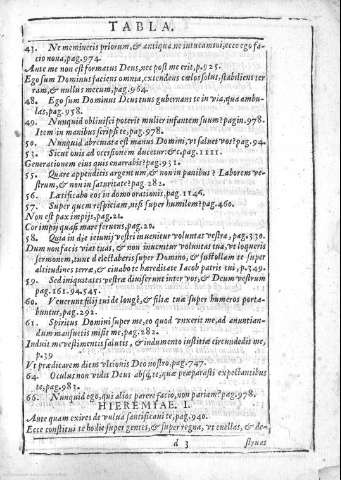 TABLA.
43. Ne memineris priorum, & antiqua ne intueamini, ecce ego fa-
cio noua, pag. 974.
Ante me non est formatus Deus, nec post me erit, p. 925.
Ego sum Dominus faciens omnia, extendens cœlos solus, stabiliens ter
ram, & nullus mecum, pag. 964.
48. Ego sum Dominus Deus tuus gubernans te in via, qua ambu-
las, pag. 958.
49. Nunquid obliuisci poterit mulier infantem suum? pagin. 978.
Item in manibus scripsi te, pag. 978.
50. Nunquid abreuiata est manus Domini, vt saluet vos? pag. 94.
53. Sicut ouis ad occisionem ducetur: &c. pag. 1121.
Generationem eius quis enarrabit? pag. 931.
55. Quare appenditis argentum, & non in panibus? Laborem ve-
strum, & non in saturitate? pag. 282.
56. Lætificabo eos in domo orationis, pag. 1146.
57. Super quem respiciam, nisi super humilem? pag. 460.
Non est pax impijs, pag. 21.
Cor impij quasi mare feruens, pag. 20.
58. Quia in die ieiunij vestri inuenitur voluntas vestra, pag. 330.
Dum non facis vias tuas, & non inuenitur voluntas tua, vt loqueris
sermonem, tunc delectaberis super Domino, & sustollam te super
altitudines terræ, & cibabo te hæreditate Iacob patris tui, p. 349.
59. Sed iniquitates vestræ diuiserunt inter vos, & Deum vestrum
pag. 161. 94. 545.
60. Venerunt filij tui de longè, & filiæ tuæ super humeros porta-
buntur, pag. 292.
61. Spiritus Domini super me, eo quod vnxerit me, ad anuntian-
dum mansuetis misit me, pag. 282.
Induit me vestimentis salutis, & indumento iustitiæ circundedit me,
p. 39
Vt prædicarem diem vltionis Deo nostro, pag. 747.
64. Oculus non vidit Deus absq; te, quæ præparasti expectantibus
te, pag. 983.
66. Nunquid ego, qui alios parere facio, non pariam? pag. 978.
HIEREMIAE. I.
Ante quam exires de vulua sanctificaui te, pag. 940.
Ecce constitui te hodie super gentes, & super regna, vt euellas, & de-
d 3 struas